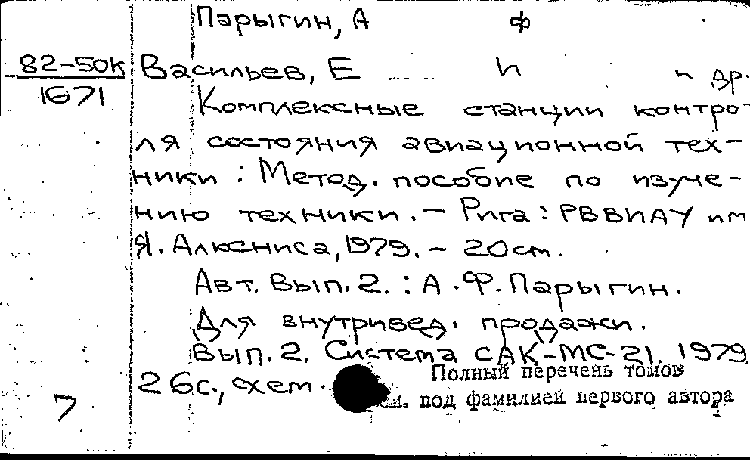 Парыгин, А Ф
82-50к Васильев, Е П и др.
1671 Комплексные станции контро-
ля состояния авиационной тех-
ники : Метод. пособие по изуче-
нию техники. - Рига : РВВИАУ им
Я. Алксниса, 1979. - 20см.
Авт. Вып. 2. : А. Ф. Парыгин.
Для внутривед. продажи.
Вып. 2. Система САК-МС-21. 1979.
26с., схем.
Полный перечень томов
см. под фамилией первого автора
7